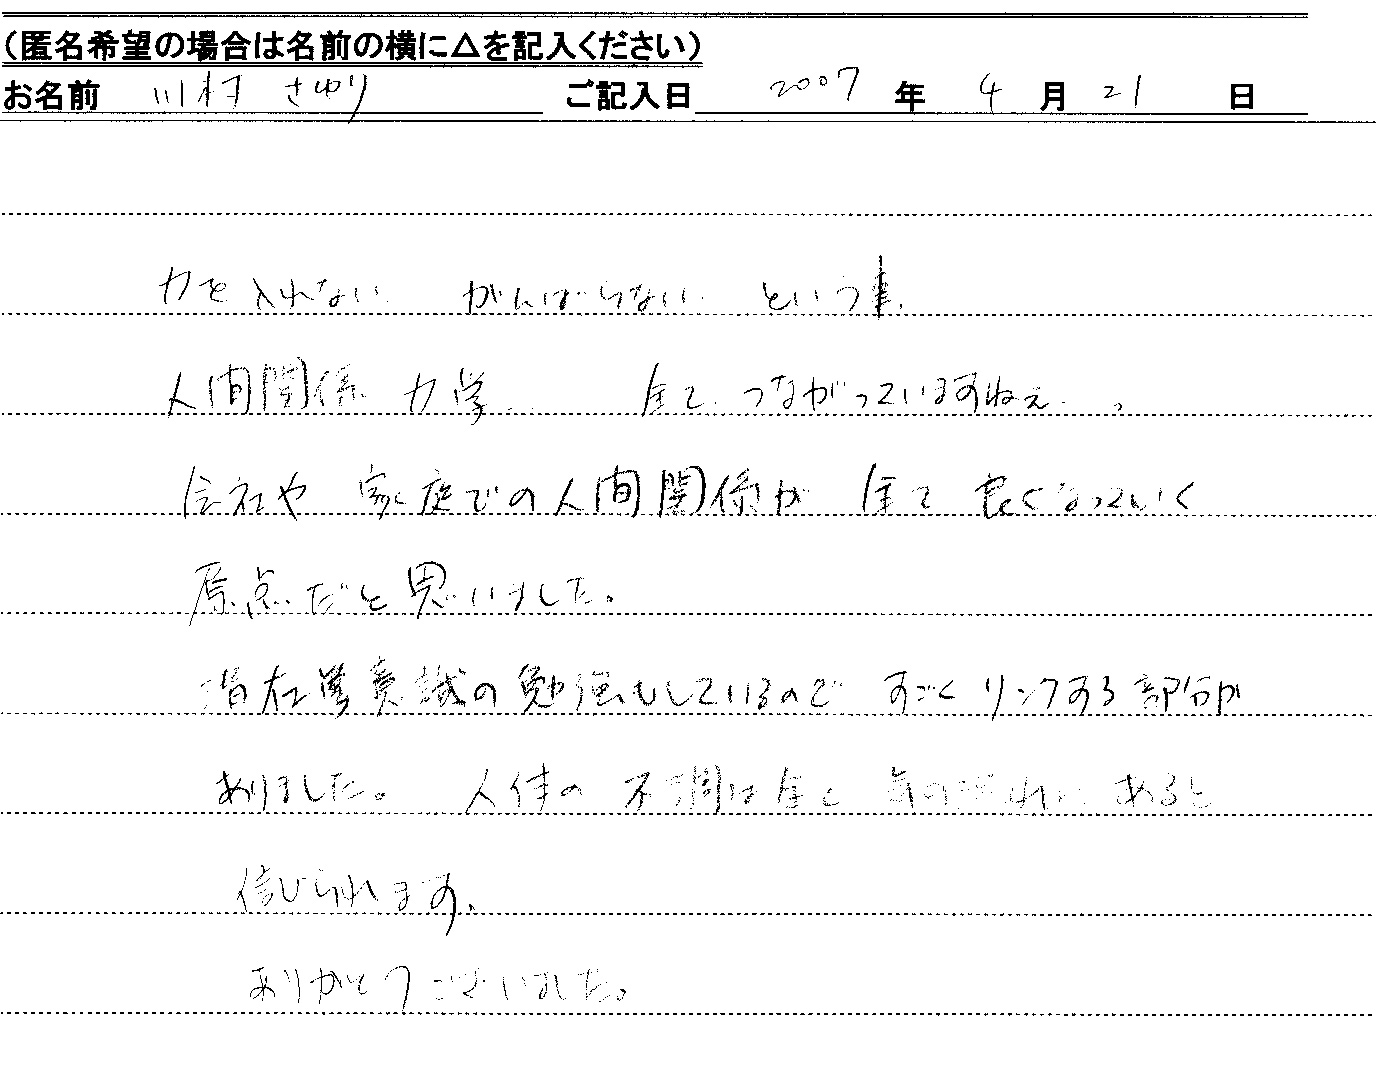 （匿名希望の場合は名前の横に△を記入ください）
お名前 川村 さゆり ご記入日 2007 年 4 月 21 日
力を入れない がんばらない という事、
人間関係 力学… 全て つながっていますねぇ…。
会社や 家庭での人間関係が 全て 良くなっていく
原点だと思いました。
潜在意識の勉強もしているので すごくリンクする部分が
ありました。 人体の 不調は全て 気の流れに あると
信じられます。
ありがとうございました。